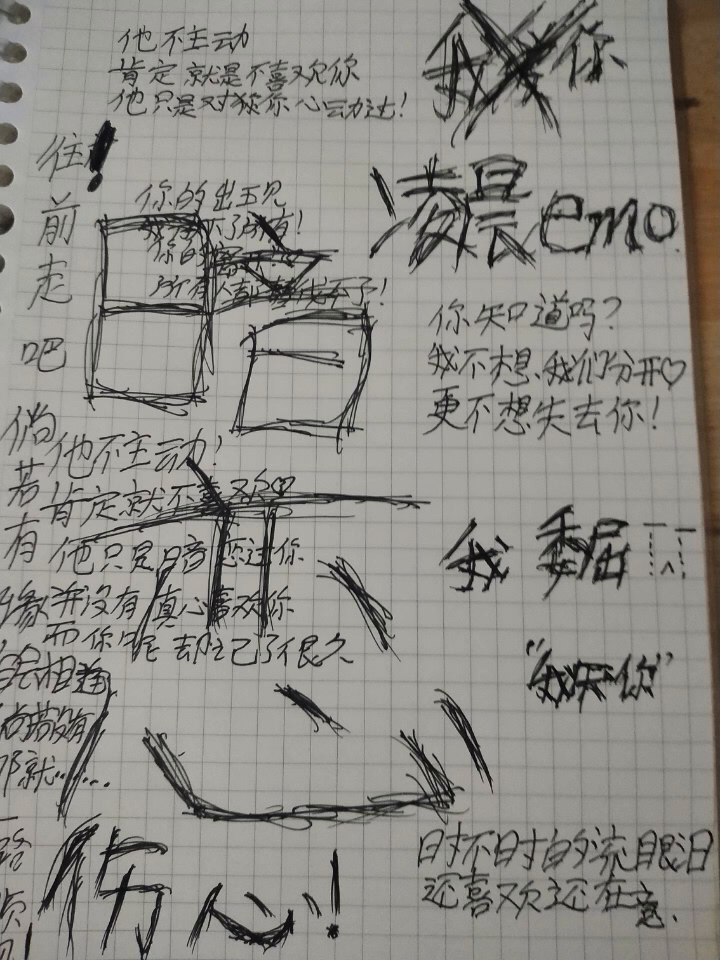 他不主动
肯定就是不喜欢你
他只是对你心动过！
我 你
往
前
走
吧
凌晨emo
你的出现
所有人都替代不了！
你知道吗？
我不想我们分开♡
更不想失去你！
暗恋
倘
若
有
缘
他不主动！
肯定就不喜欢♡
他只是暗恋过你
并没有真心喜欢你
而你呢却记了很久
我委屈
"我 你"
自会相逢
倘若没有
那就……
一
路
伤心！
时不时的流眼泪
还喜欢还在意.